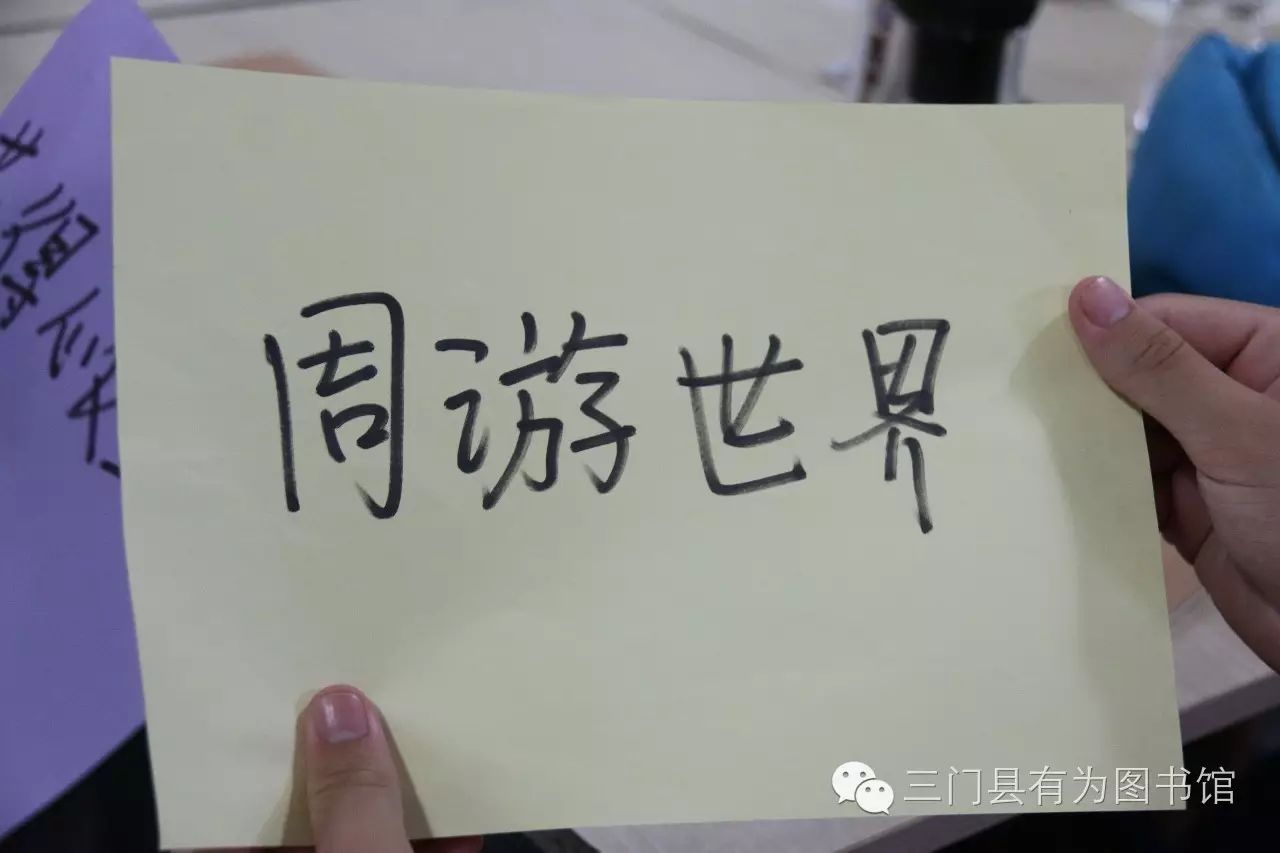 周游世界
三门县有为图书馆